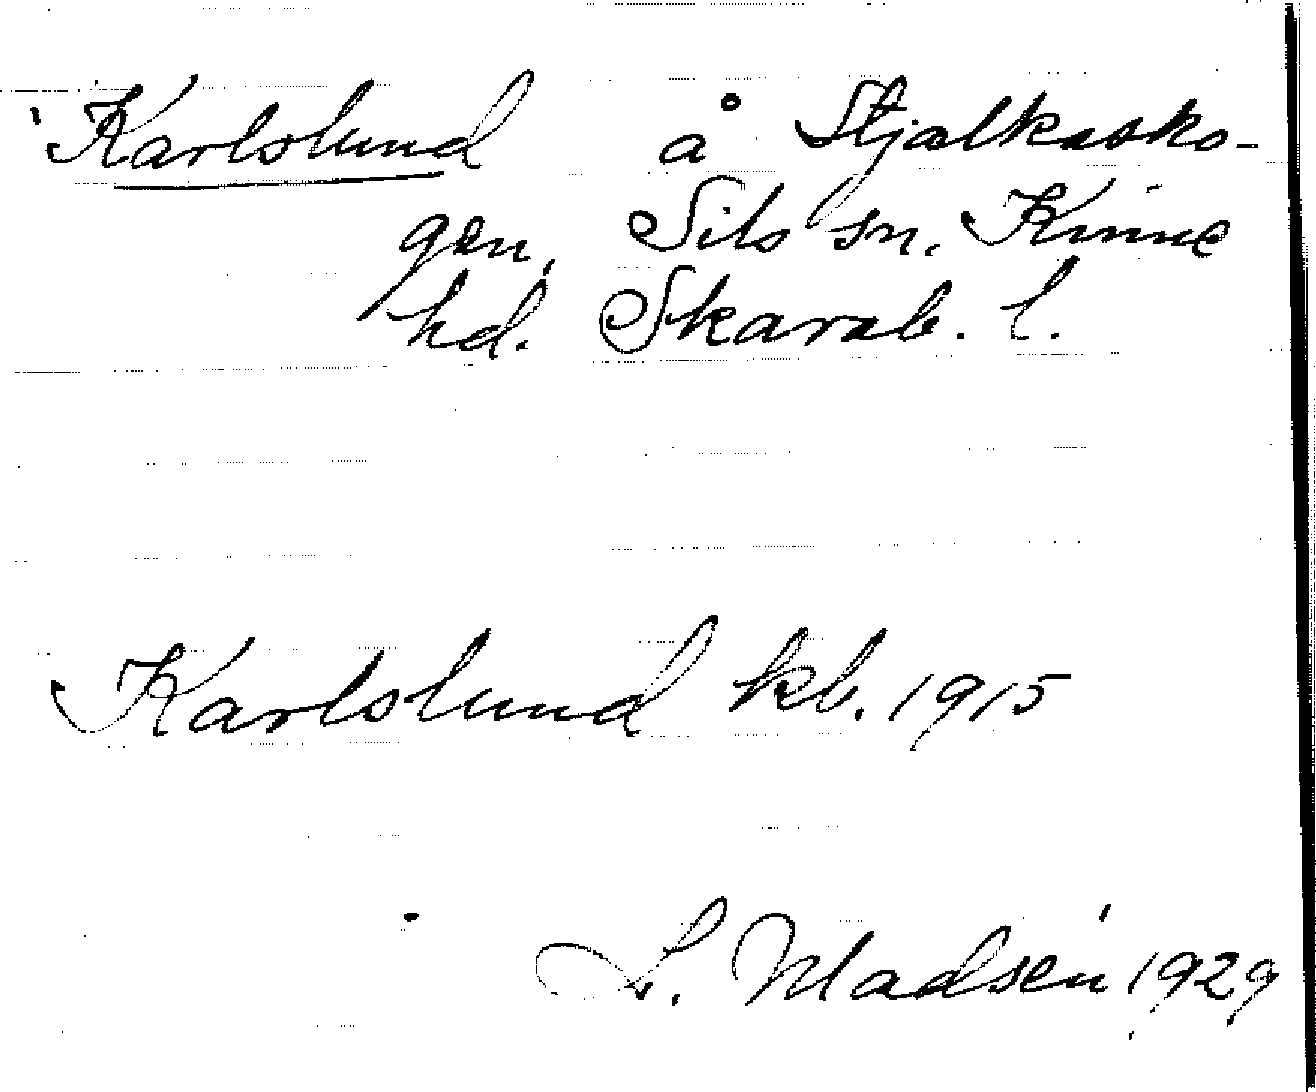 Karlslund å Stjälkasko-
gen, Sils sn. Kinne
hd. Skarab. l.
Karlslund kb. 1915
S. Madsén 1929